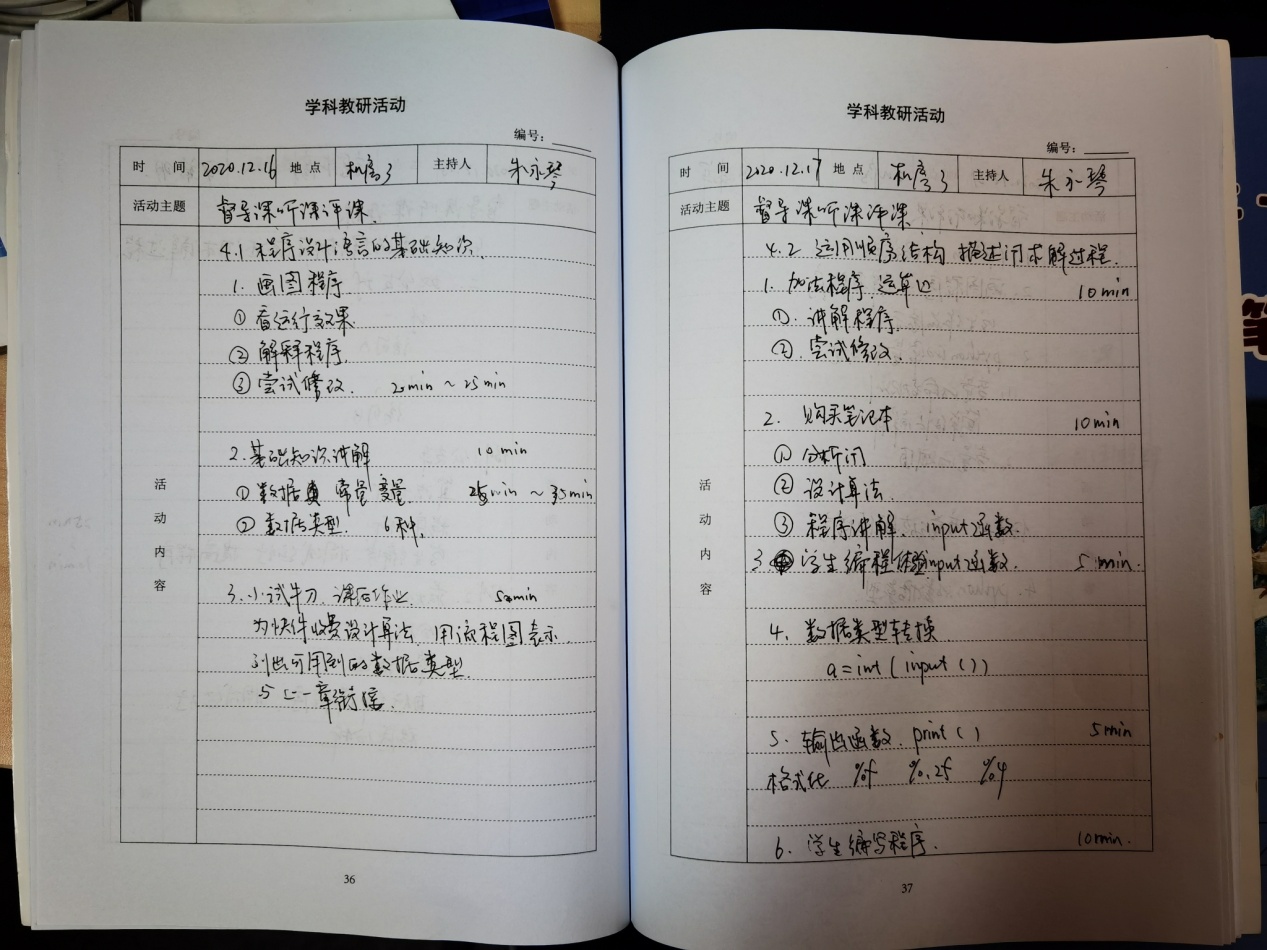 学科教研活动
编号：
时 间 2020.12.16 地 点 机房3 主持人 朱永琴
活动主题 督导课听课评课.
活动内容
4.1 程序设计语言的基础知识.
1. 画图程序
① 看运行效果
② 解释程序.
③ 尝试修改. 20min ~ 25min
2. 基础知识讲解 10min
① 数据 常量 变量 25min ~ 35min
② 数据类型. 6种.
3. 小试牛刀. 课后作业. 5min
为快件收费设计算法. 用流程图表示.
列出可用到的数据类型.
与上一章衔接.
36
学科教研活动
编号：
时 间 2020.12.17 地 点 机房3 主持人 朱永琴
活动主题 督导课听课评课
活动内容
4.2 运用顺序结构 描述问求解过程.
1. 加法程序. 运算 10min
①. 讲解程序.
②. 尝试修改
2. 购买笔记本 10min
① 分析问
② 设计算法.
③ 程序讲解. input函数.
3 学生编程体验input函数. 5min.
4. 数据类型转换
a=int(input())
5. 输出函数. print() 5min
格式化 %f %.2f
6. 学生编写程序. 10min.
37